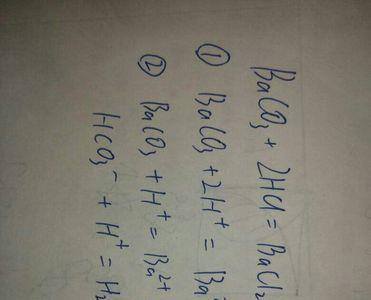 BaCO₃ + 2HCl = BaCl₂
① BaCO₃ + 2H⁺ = Ba²
② BaCO₃ + H⁺ = Ba²⁺
HCO₃⁻ + H⁺ = H₂